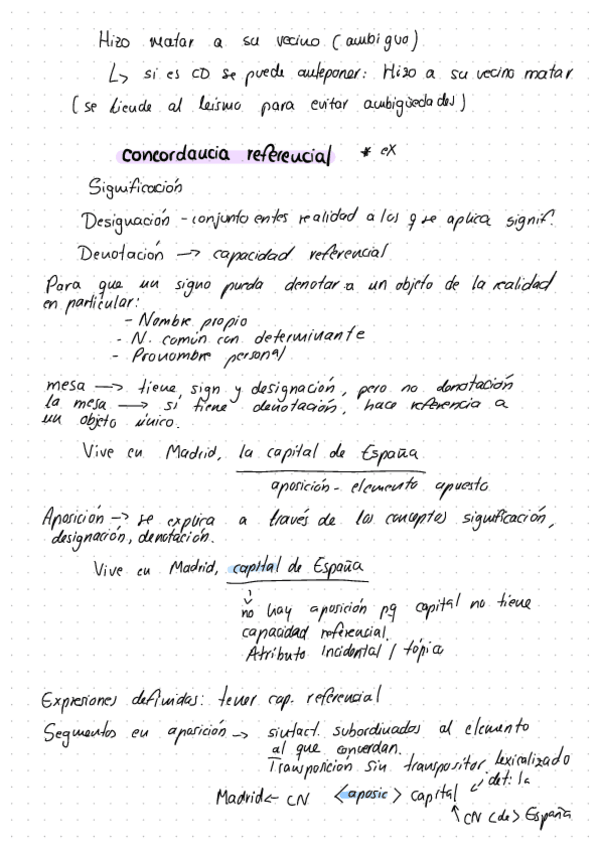 Hizo matar a su vecino (ambiguo)
↳ si es CD se puede anteponer: Hizo a su vecino matar
(se tiende al leísmo para evitar ambigüedades)
concordancia referencial * ex
Significación
Designación - conjunto entes realidad a los q se aplica signif.
Denotación → capacidad referencial
Para que un signo pueda denotar a un objeto de la realidad
en particular:
- Nombre propio
- N. común con determinante
- Pronombre personal
mesa → tiene sign y designación, pero no denotación
la mesa → sí tiene denotación, hace referencia a
un objeto único.
Vive en Madrid, la capital de España
aposición - elemento apuesto
Aposición → se explica a través de los conceptos significación,
designación, denotación.
Vive en Madrid, capital de España
↓
no hay aposición pq capital no tiene
capacidad referencial.
Atributo incidental / tópia
Expresiones definidas: tener cap. referencial
Segmentos en aposición → sintact. subordinados al elemento
al que concuerdan.
Transposición sin transpositor lexicalizado
Madrid ← CN <aposic> capital ↙ det: la
↑ CN <de> España